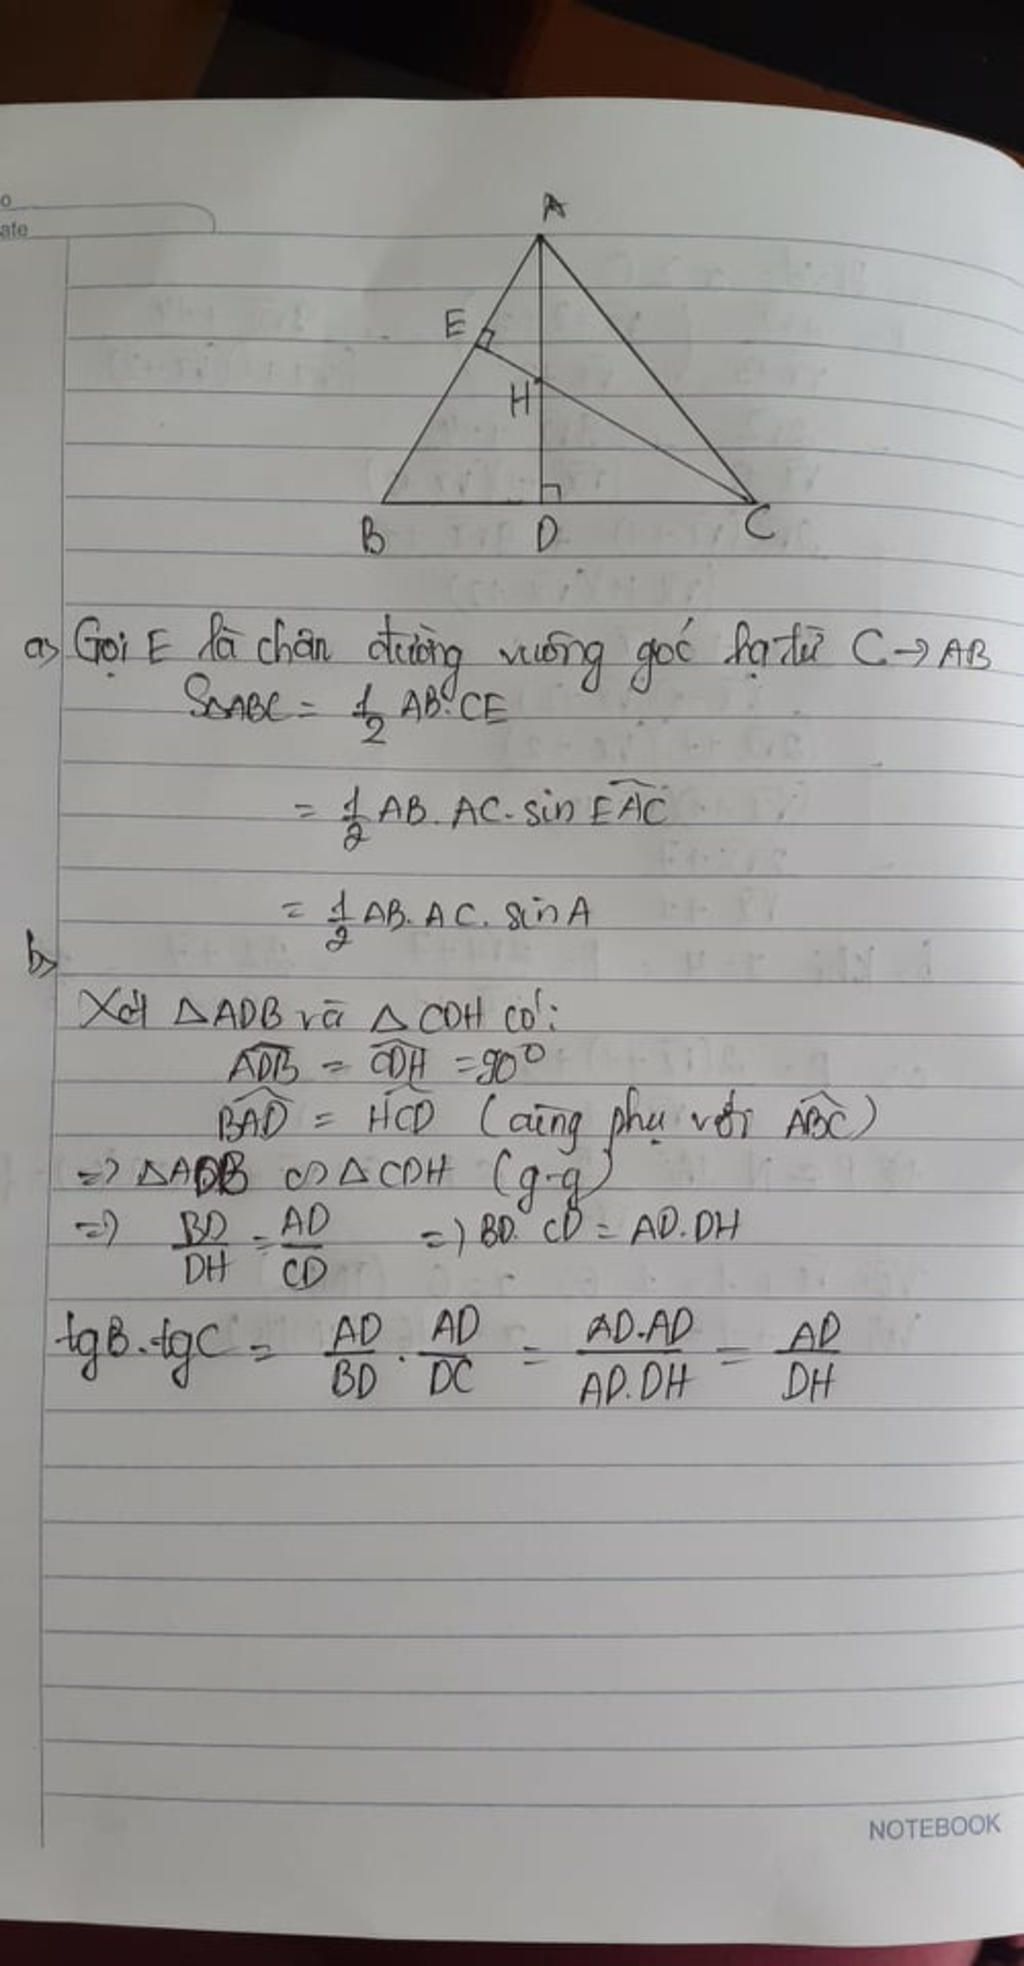 o
ate
A
E
H
B D C
a) Gọi E là chân đường vuông góc hạ từ C → AB
S△ABC = 1/2 AB.CE
= 1/2 AB. AC. sin EAC
= 1/2 AB. AC. sin A
b)
Xét △ADB và △CDH có:
ADB = CDH = 90°
BAD = HCD (cùng phụ với ABC)
=> △ADB ∽ △CDH (g-g)
=> BD/DH = AD/CD => BD. CD = AD.DH
tgB.tgC = AD/BD . AD/DC = AD.AD/AD.DH = AD/DH
NOTEBOOK